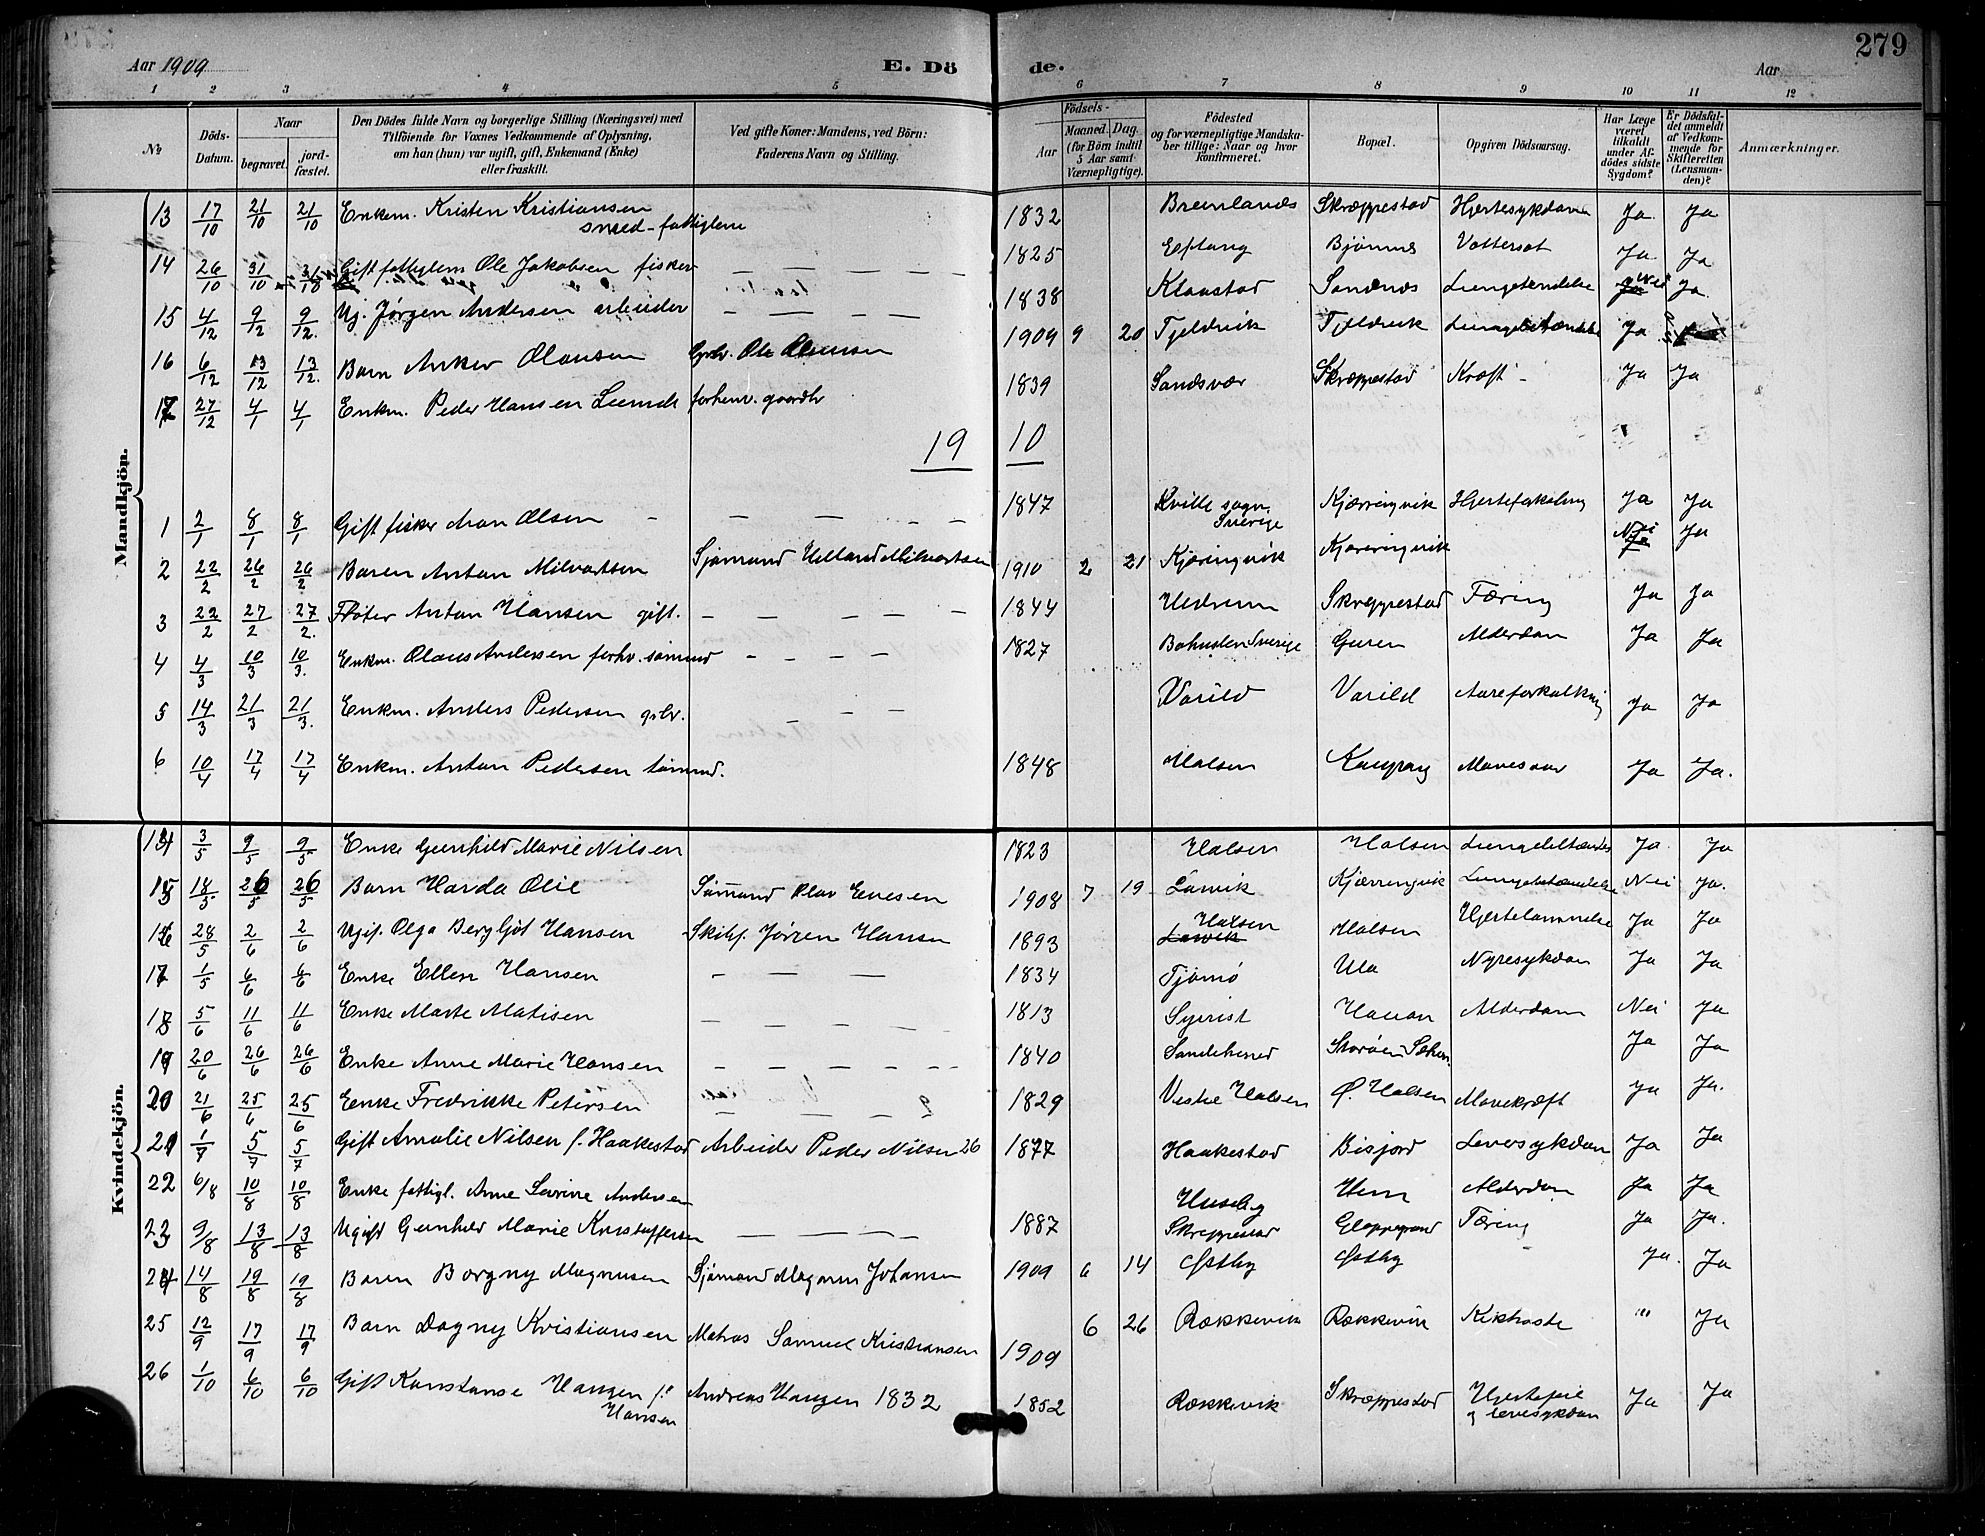 Aar 1909
E. Dö
de.
Aar
279
1 2 3 4 5 6 7 8 9 10 11 12
№
Döds-Datum.
Naar
begravet.
jord-fæstet.
Den Dödes fulde Navn og borgerlige Stilling (Næringsvei) med
Tilföiende for Voxnes Vedkommende af Oplysning,
om han (hun) var ugift, gift, Enkemand (Enke)
eller fraskilt.
Ved gifte Koner: Mandens, ved Börn:
Faderens Navn og Stilling.
Födsels-
Aar
Maaned. Dag.
(for Börn indtil
5 Aar samt
Værnepligtige).
Födested
og for værnepligtige Mandska-
ber tillige: Naar og hvor
konfirmeret.
Bopæl.
Opgiven Dödsaarsag.
Har Læge
været
tilkaldt
under Af-
dödes sidste
Sygdom?
Er Dödsfal-
det anmeldt
af Vedkom-
mende for
Skifteretten
(Lensman-
den)?
Anmærkninger.
Mandkjön.
13 17/10 21/10 21/10 Enkm. Kristen Kristiansen 1832 Skræppestad Hjertesykdom Ja Ja
smed - fattiglem
14 26/10 31/10 Gift fattiglem Ole Jakobsen fisker — — — — — 1825 Eftang Bjønnes Vattersot Ja Ja
15 4/12 9/12 9/12. Ug. Jørgen Andersen arbeider — — — — 1838 Klaastad Sandnes Lungebetændelse Nei Ja.
16 6/12 13/12 13/12. Barn Anker Olausen Grbr. Ole Olausen 1909 9 20 Tjeldvik Tjeldvik Lungebetændelse Ja
17 27/12 4/1 4/1 Enkm. Peder Hansen forhenv. gaardbr 1839 Sandsvær Skræppestad Kræft - Ja Ja
19 10
1 2/1 8/1 8/1 Gift fisker Olsen — — — — 1847 Kville sogn Sverige Kjærringvik Hjerteforkalkning Ja Ja
2 22/2 26/2 26/2 Barn Anton Milvartsen Sjømand Milvartsen 1910 2 21 Kjæringvik Kjærringvik Nei Ja
3 22/2 27/2 27/2. Fløter Anton Hansen gift. — — — — — 1844 Hedrum Skreppestad Tæring Ja Ja
4 4/3 10/3 10/3. Enkm. Olaus Andersen forhv. sømand — — — — 1827 Bohuslen Sverige Guren Alderdom Ja Ja
5 14/3 21/3 21/3. Enkm. Anders Pedersen grbr. — — — Varild Varild Aareforkalkning Ja Ja
6 10/4 17/4 17/4 Enkm. Anton Pedersen tømmd. 1848 Halsen Kaupang Mavesaar Ja Ja.
Kvindekjön.
14 3/5 9/5 9/5 Enke Gunhild Marie Nilsen 1823 Halsen Halsen Lungebetændelse Ja Ja
15 18/5 26/5 26/5 Barn Harda Olie Sømand Olav Evensen 1908 7 19 Larvik Kjærringvik Lungebetændelse Nei Ja.
16 28/5 2/6 2/6 Ugif. Olga Bergljot Hansen Skibsf. Jørgen Hansen 1893 Halsen Larvik Halsen Hjertelammelse Ja Ja
17 1/5 6/6 6/6 Enke Ellen Hansen — — — 1834 Tjømø Ula Nyresykdom Ja Ja
18 5/6 11/6 11/6 Enke Marte Matisen — — — — — 1813 Syrist Hauan Alderdom Nei Ja
19 20/6 26/6 26/6 Enke Anne Marie Hansen — — — — — — 1840 Sandeherred Ja Ja
20 21/6 25/6 25/6 Enke Fredrikke Petersen — — — — 1829 Vestre Halsen Ø. Halsen Mavekræft Ja Ja.
21 1/7 5/7 5/7 Gift Amalie Nilsen f. Haakestad Arbeider Peder Nilsen 26 1877 Haakestad Bisjord Leversykdom Ja Ja
22 6/8 10/8 10/8 Enke fattigl. Anne Severine Andersen Huseby Hem Alderdom Ja Ja
23 9/8 13/8 13/8 Ugift Gunhild Marie Kristoffersen — — — — — 1887 Skreppestad Tæring Ja Ja.
24 14/8 19/8 19/8 Barn Borgny Magnusen Sjømand Magnus Johansen 1909 6 14 Østby Østby Ja. Ja
25 12/9 17/9 17/9 Barn Dagny Kristiansen Matros Samuel Kristiansen 1909 6 26 Rækkevik Rækkevik Kikhoste " Ja
26 1/10 6/10 6/10 Gift Konstanse Haugen f. Hansen Andreas Haugen 1832 1852 Rækkevik Skræppestad Hjertefeil og leversykdom Ja Ja